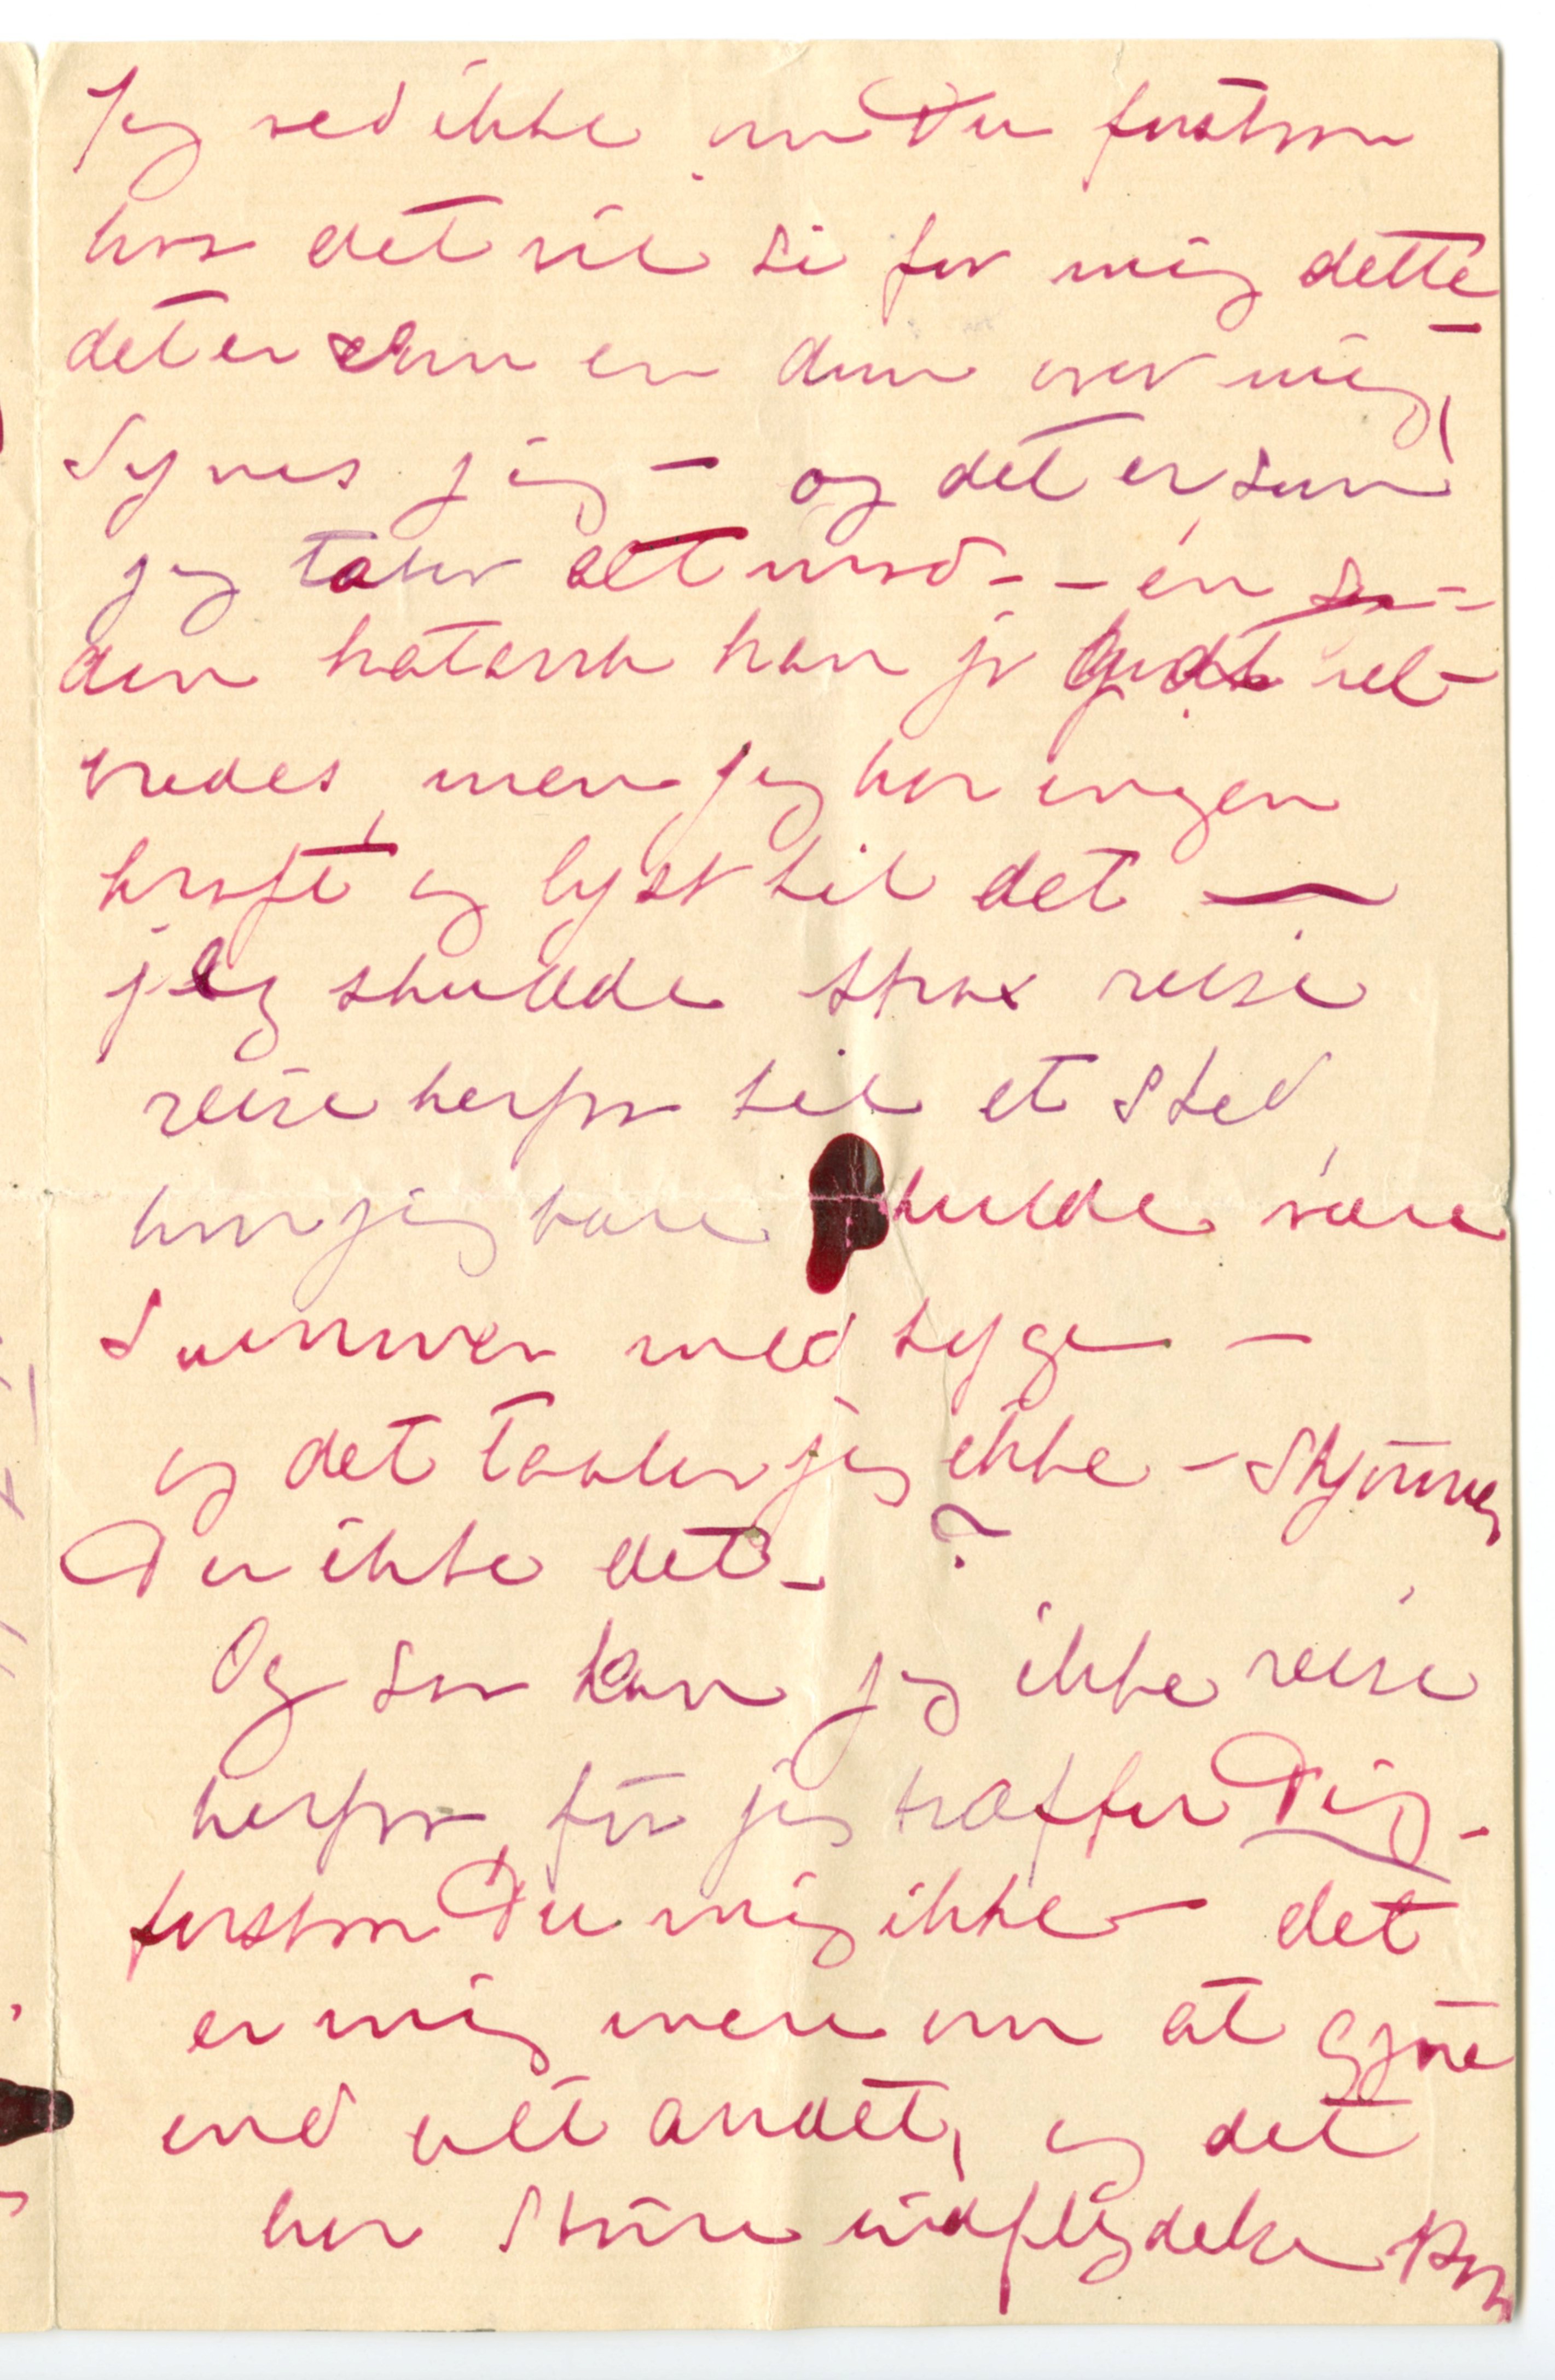 Jeg ved ikke om Du forstaar
hva det vil si for mig dette
det er som en dom over mig,
synes jeg – og det er som
jeg taber alt mod – – en saa-
dan katarrh kan jo godt hel-
bredes, men jeg har ingen
kraft og lyst til det —
jeg skulde strax reise
reise herfra til et sted,
hvor jeg bare skulde være
sammen med syge –
og det taaler jeg ikke – Skjønner
Du ikke det – ?
Og saa kan jeg ikke reise
herfra før jeg træffer Dig –
forstaar Du mig ikke – det
er mig mere om at gjøre
end alt andet, og det
har større indflydelse paa